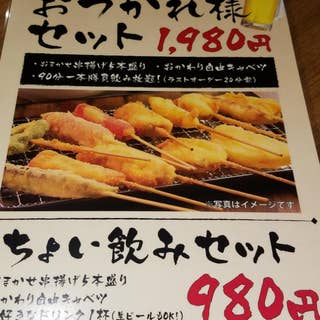 おつかれ様
セット 1,980円
・おまかせ串揚げ5本盛り ・おかわり自由キャベツ
・90分一本勝負飲み放題!(ラストオーダー20分前)
※写真はイメージです
ちょい飲みセット
おまかせ串揚げ5本盛り
かわり自由キャベツ
好きなドリンク1杯(生ビールもOK!)
980円